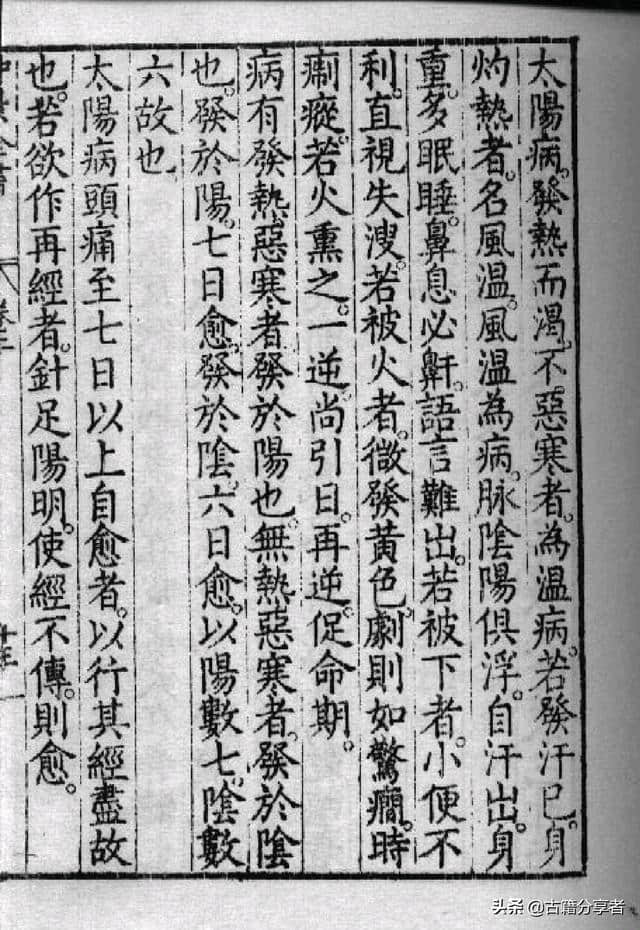 太陽病。發熱而渴。不惡寒者。為溫病。若發汗已。身
灼熱者。名風溫。風溫為病。脉陰陽俱浮。自汗出。身
重。多眠睡。鼻息必鼾。語言難出。若被下者。小便不
利。直視失溲。若被火者。微發黃色。劇則如驚癇。時
瘛瘲。若火熏之。一逆尚引日。再逆促命期。
病有發熱惡寒者。發於陽也。無熱惡寒者。發於陰
也。發於陽。七日愈。發於陰。六日愈。以陽數七。陰數
六故也
太陽病頭痛至七日以上自愈者。以行其經盡故
也。若欲作再經者。針足陽明。使經不傳。則愈。
頭条 @古籍分享者